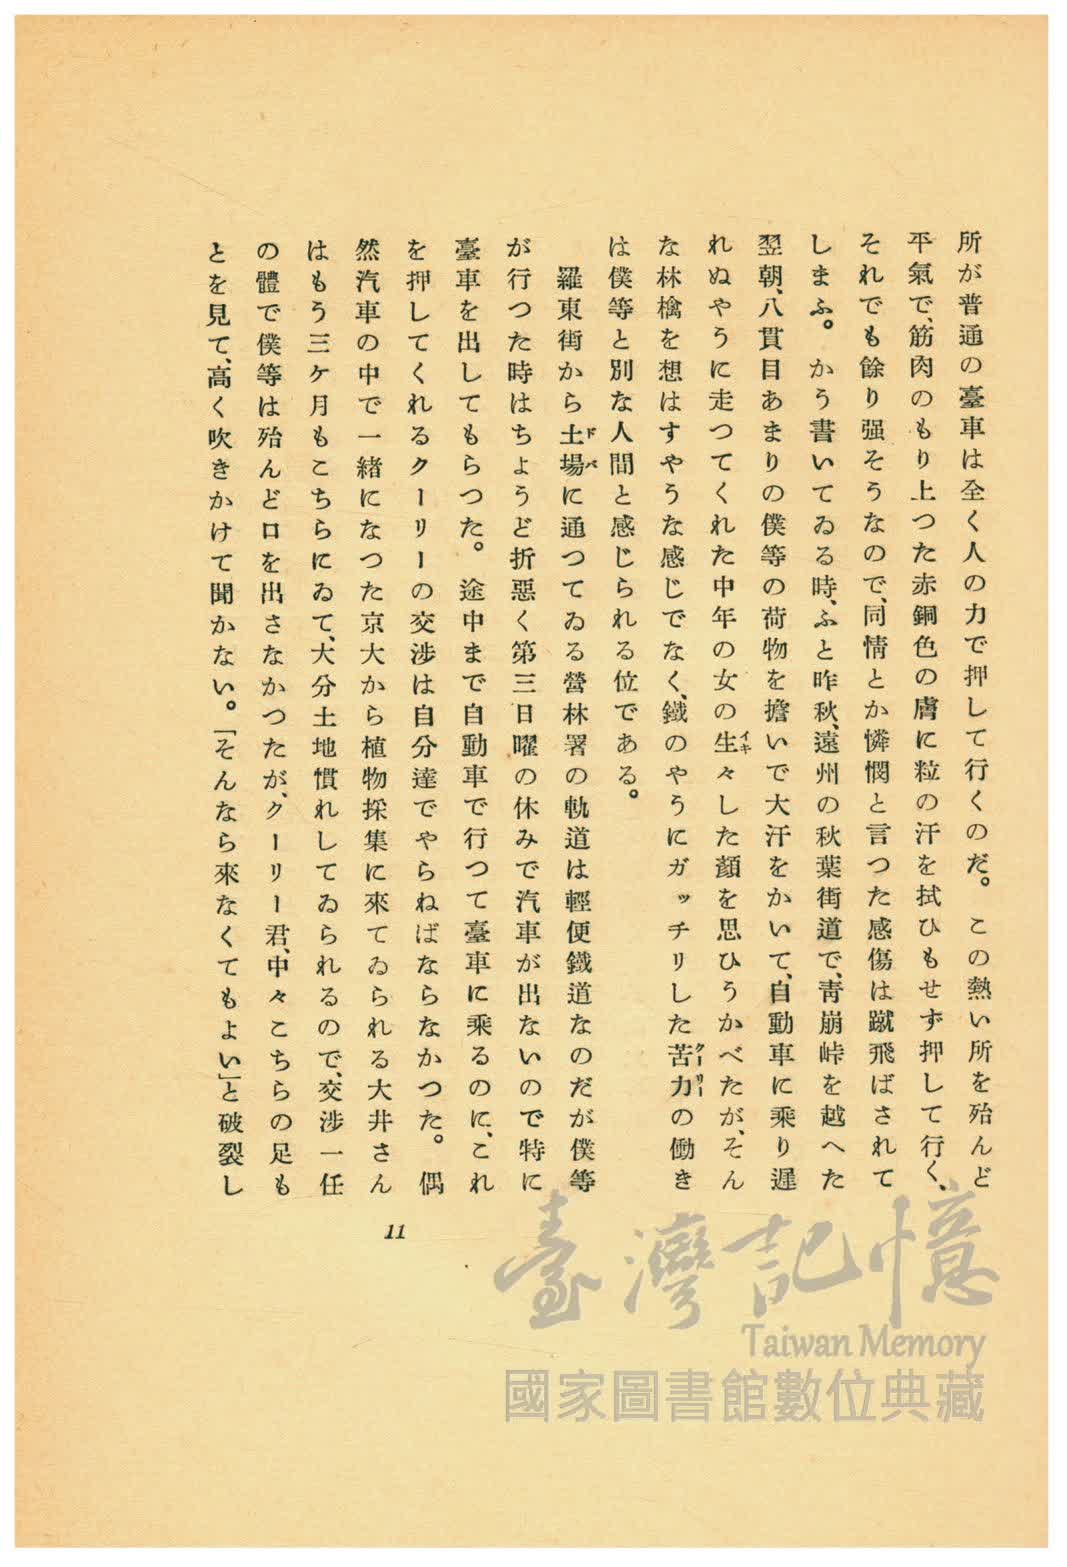 所が普通の臺車は全く人の力で押して行くのだ。この熱い所を殆んど
平氣で、筋肉のもり上つた赤銅色の膚に粒の汗を拭ひもせず押して行く、
それでも餘り强そうなので、同情とか憐憫と言つた感傷は蹴飛ばされて
しまふ。かう書いてゐる時、ふと昨秋、遠州の秋葉街道で、靑崩峠を越へた
翌朝、八貫目あまりの僕等の荷物を擔いで大汗をかいて、自動車に乘り遲
れぬやうに走つてくれた中年の女の生々した顏を思ひうかべたが、そん
イキ
な林檎を想はすやうな感じでなく、鐵のやうにガッチリした苦力の働き
クーリー
は僕等と別な人間と感じられる位である。
羅東街から土場に通つてゐる營林署の軌道は輕便鐵道なのだが僕等
ドバ
が行つた時はちょうど折惡く第三日曜の休みで汽車が出ないので特に
臺車を出してもらつた。途中まで自動車で行つて臺車に乘るのに、これ
を押してくれるクーリーの交涉は自分達でやらねばならなかつた。偶
然汽車の中で一緖になつた京大から植物採集に來てゐられる大井さん
はもう三ケ月もこちらにゐて、大分土地慣れしてゐられるので、交涉一任
の體で僕等は殆んど口を出さなかつたが、クーリー君、中々こちらの足も
とを見て、高く吹きかけて聞かない。「そんなら來なくてもよい」と破裂し
11
臺灣記憶
Taiwan Memory
國家圖書館數位典藏